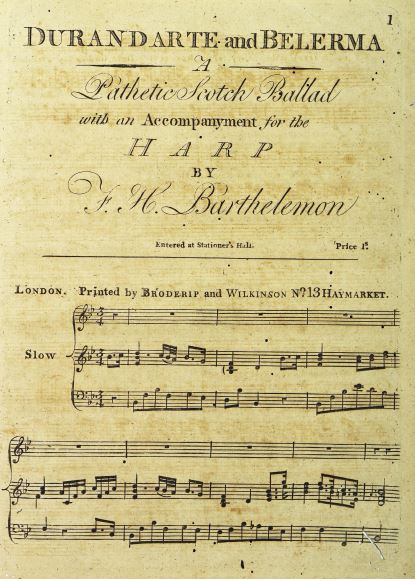 1
DURANDARTE and BELERMA
A
Pathetic Scotch Ballad
with an Accompanyment for the
HARP
BY
F. H. Barthelemon
Entered at Stationer's Hall. Price 1s.
LONDON. Printed by BRODERIP and WILKINSON No. 13 HAYMARKET.
Slow